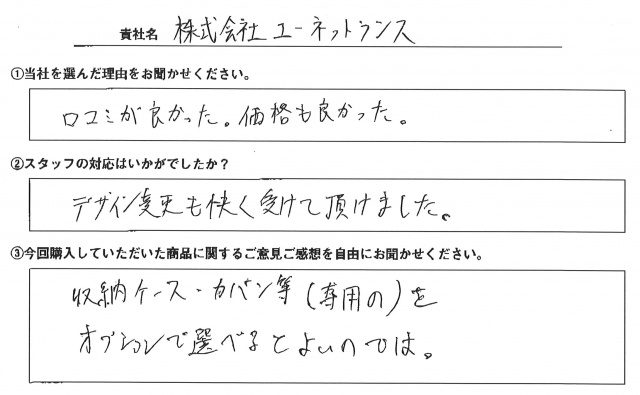 貴社名 株式会社ユーネットランス
①当社を選んだ理由をお聞かせください。
口コミが良かった。価格も良かった。
②スタッフの対応はいかがでしたか？
デザイン変更も快く受けて頂けました。
③今回購入していただいた商品に関するご意見ご感想を自由にお聞かせください。
収納ケース・カバン等（専用の）を
オプションで選べるとよいのでは。